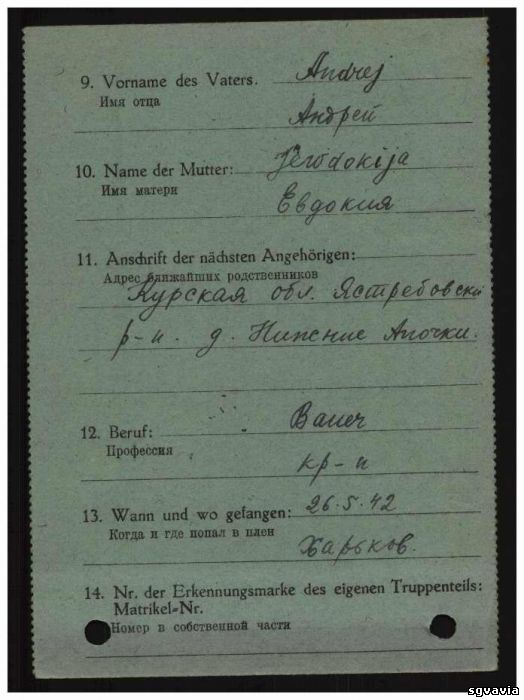 9. Vorname des Vaters. Andrej
Имя отца
Андрей
10. Name der Mutter: Jewdokija
Имя матери
Евдокия
11. Anschrift der nächsten Angehörigen:
Адрес ближайших родственников
Курская обл. Ястребовски
р-н. д. Нижние Апочки.
12. Beruf: Bauer
Профессия
кр-н
13. Wann und wo gefangen: 26.5.42
Когда и где попал в плен
Харьков.
14. Nr. der Erkennungsmarke des eigenen Truppenteils:
Matrikel-Nr.
Номер в собственной части
sgvavia